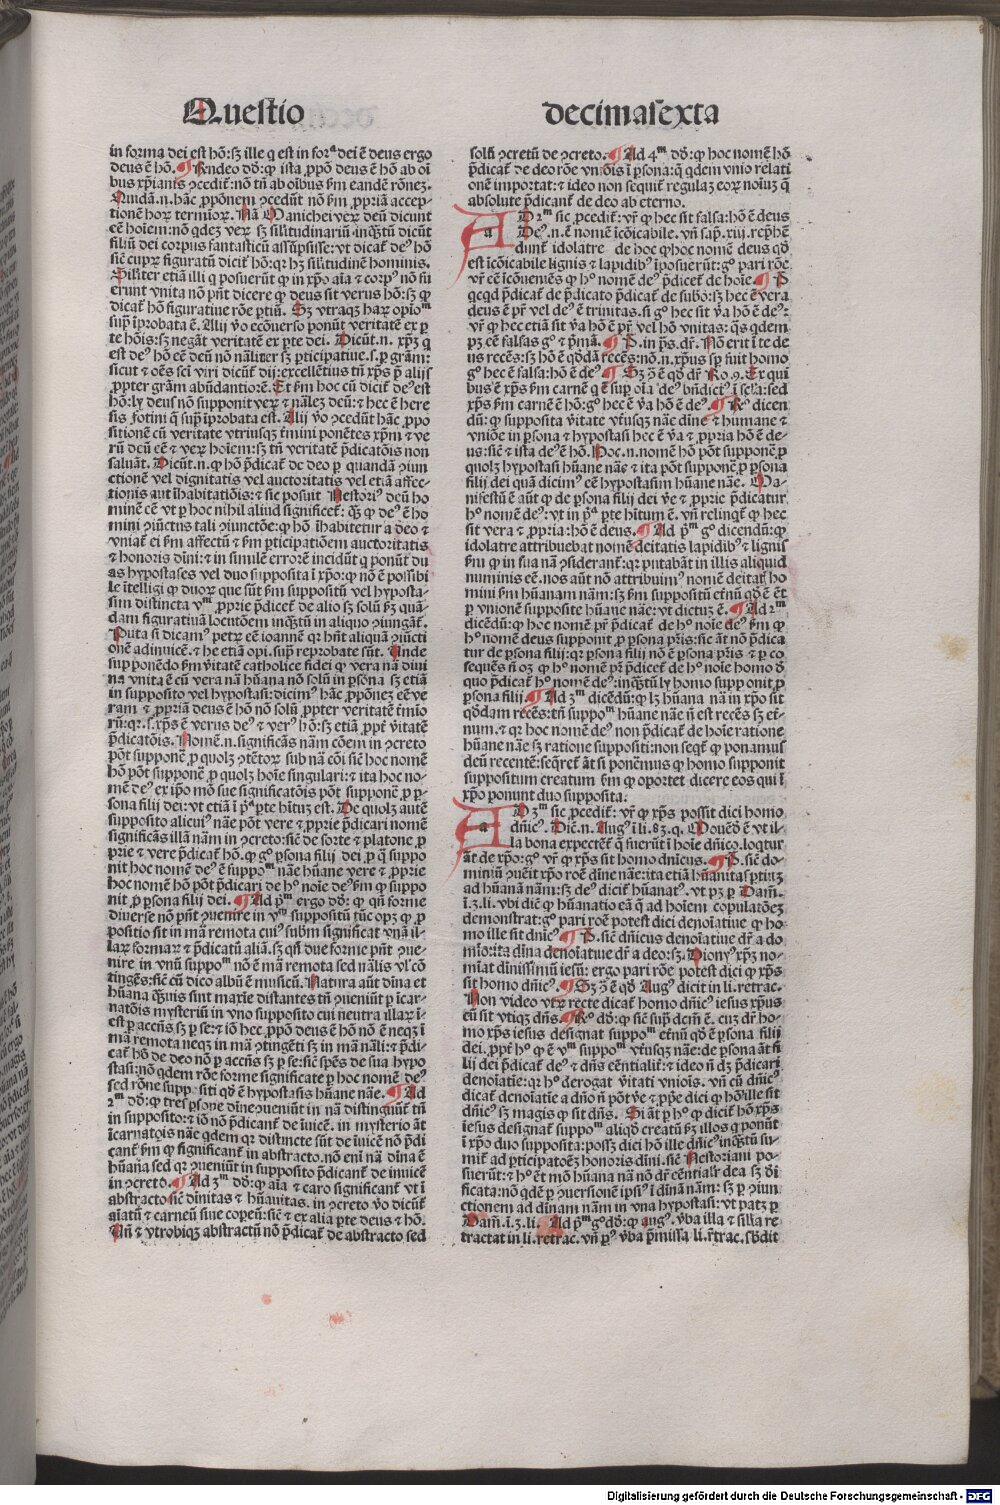 Questio decimasexta
in forma dei est hō: sꝫ ille q̄ est in forᵃ dei ē deus ergo
deus ē hō. Rn̄deo dō: ꝙ ista ꝓpō deus ē hō ab oī
bus xp̄ianis ꝯcedit᷑: nō tn̄ ab oībus ẜm eandē rōnez.
Quidā.n. hāc ꝓpōnem ꝯcedūt nō ẜm ꝓpriā accep-
tionē hoꝝ termīoꝝ. Nā Manichei veꝝ deū dicunt
eē hoīem: nō qdez veꝝ sꝫ silitudinariū. inq̄stū dicūt
filiū dei corpus fantasticū assūpsisse: vt dicat᷑ deꝰ hō
Sīliter etiā illi q posuerūt ꝙ in xp̄o aīa ⁊ corpꝰ nō fu
erunt vnita nō pn̄t dicere ꝙ deus sit verus hō: sꝫ ꝙ
dicat᷑ hō figuratiue rōe ꝑtiū. Sꝫ vtraqꝫ haꝝ opioᵐ
sup̄ īprobata ē. Alij v̄o ecōuerso ponūt veritatē ex ꝑ
te hōis: sꝫ negāt veritatē ex ꝑte dei. Dicūt.n. xp̄ꝫ q
est deꝰ hō eē deū nō nāliter sꝫ ꝑticipatiue. s. ꝑ grām:
sicut ⁊ oēs sci viri dicūt᷑ dij: excellētius tn̄ xp̄s p̄ alijs
ꝓpter grām abūdantiorē. Et ẜm hoc cū dicit᷑ deꝰ est
hō: ly deus nō supponit veꝝ ⁊ nālez deū: ⁊ hec ē here
sis fotini q̄ sup̄ īprobata est. Alij v̄o ꝯcedūt hāc ꝓpo
sitionē cū veritate vtriusqꝫ t̄mini ponētes xp̄m ⁊ ve
rū deū eē ⁊ veꝝ hoīem: sꝫ tn̄ veritatē p̄dicatōis non
saluāt. Dicūt.n. ꝙ hō p̄dicat᷑ de deo ꝑ quandā ꝯiun
ctionē vel dignitatis vel auctoritatis vel etiā affec-
tionis aut īhabitatiōis: ⁊ sic posuit Nestoriꝰ deū ho
minē eē vt ꝑ hoc nihil aliud significet᷑: q̄ꝫ ꝙ deꝰ ē ho
mini ꝯiūctus tali ꝯiunctōe: ꝙ hō īhabitetur a deo ⁊
vniat᷑ ei ẜm affectū ⁊ ẜm ꝑticipatiōem auctoritatis
⁊ honoris dīni: ⁊ in similē errorē incidūt q ponūt du
as hypostases vel duo supposita ī xp̄o: ꝙ nō ē possibi
le ītelligi ꝙ duoꝝ que sūt ẜm suppositū vel hyposta-
sim distincta vᵐ ꝓprie p̄dicet᷑ de alio sꝫ solū ẜꝫ quā-
dam figuratiuā locutōem inq̄stū in aliquo ꝯiungāt᷑.
Puta si dicamꝰ petꝝ eē ioannē qꝛ hn̄t aliquā ꝯiūcti
onē adinuicē. ⁊ he etiā opi. sup̄ reprobate sūt. Unde
supponēdo ẜm v̄itatē catholice fidei ꝙ vera nā diui
na vnita ē cū vera nā hūana nō solū in ꝑsōna sꝫ etiā
in supposito vel hypostasi: dicimꝰ hāc ꝓpōnez eē ve
ram ⁊ ꝓpriā deus ē hō nō solū ꝓpter veritatē t̄mio
rū: qꝛ. s. xp̄s ē verus deꝰ ⁊ verꝰ hō: sꝫ etiā ꝓpt᷑ v̄itatē
p̄dicatōis. Nomē.n. significās nām cōem in ꝯcreto
pōt supponē ꝓ quolꝫ ꝯtētoꝝ sub nā cōi sic̄ hoc nomē
hō pōt supponē ꝓ quolꝫ hoīe singulari: ⁊ ita hoc no-
mē deꝰ ex ip̄o mō sue significatōis pōt supponē ꝓ ꝑ-
sona filij dei: vt etiā ī p̄ᵃ ꝑte hītuꝫ est. De quolꝫ autē
supposito alicuiꝰ nāe pōt vere ⁊ ꝓprie p̄dicari nomē
significās illā nām in ꝯcreto: sic̄ de sorte ⁊ platone ꝓ
prie ⁊ vere p̄dicat᷑ hō. qꝛ gͦ ꝑsona filij dei ꝓ q̄ suppo
nit hoc nomē deꝰ ē suppoᵐ nāe hūane vere ⁊ ꝓprie
hoc nomē hō pōt p̄dicari de hͦ noīe deꝰ ẜm ꝙ suppo
nit ꝓ ꝑsona filij dei. Ad p̄ᵐ ergo dō: ꝙ qn̄ forme
diuerse nō pn̄t ꝯuenire in vᵐ suppositū tūc opꝫ ꝙ ꝓ
positio sit in mā remota cuiꝰ subm significat vnā il-
laꝝ formaꝝ ⁊ p̄dicatū aliā. sꝫ qn̄ due forme pn̄t ꝯue-
nire in vnū suppoᵐ nō ē mā remota sed nālis vl̓ cō
tingēs: sic̄ cū dico albū ē musicū. Natura aūt dīna et
hūana q̄ꝫuis sint maxie distantes tn̄ ꝯueniūt ꝑ īcar-
natōis mysteriū in vno supposito cui neutra illaꝝ ī-
est ꝑ accn̄s sꝫ ꝑ se: ⁊ iō hec ꝓpō deus ē hō nō ē neqꝫ ī
mā remota neqꝫ in mā ꝯtingēti sꝫ in mā nāli: ⁊ p̄di-
cat᷑ hō de deo nō ꝑ accn̄s sꝫ ꝑ se: sic̄ sp̄es de sua hypo
stasi: nō qdem rōe forme significate ꝑ hoc nomē deꝰ
sed rōne suppositi qd̄ ē hypostasis hūane nāe. Ad
2ᵐ dō: ꝙ tres ꝑsone dīne ꝯueniūt in nā distinguūt᷑ tn̄
in supposito: ⁊ iō nō p̄dicant᷑ de īuicē. in mysterio āt
īcarnatōis nāe qdem qꝛ distincte sūt de īuicē nō p̄di
cant᷑ ẜm ꝙ significant᷑ in abstracto. nō enī nā dīna ē
hūana sed qꝛ ꝯueniūt in supposito p̄dicant᷑ de inuicē
in ꝯcreto. Ad 3ᵐ dō: ꝙ aīa ⁊ caro significant᷑ vt ī
abstracto sic̄ dīnitas ⁊ hūanitas. in ꝯcreto v̄o dicūt᷑
aīatū ⁊ carneū siue corꝑeū: sic̄ ⁊ ex alia ꝑte deus ⁊ hō.
Un̄ ⁊ vtrobiqꝫ abstractū nō p̄dicat᷑ de abstracto sed
solū ꝯcretū de ꝯcreto. Ad 4ᵐ dō: ꝙ hoc nomē hō
p̄dicat᷑ de deo rōe vniōis ī ꝑsona: q̄ qdem vnio relati
onē importat: ⁊ ideo non sequit᷑ regulaꝫ eoꝝ noīuꝫ q̄
absolute p̄dicant᷑ de deo ab eterno.
AD 2ᵐ sic ꝓcedit᷑: vr̄ ꝙ hec sit falsa: hō ē deus
Deꝰ.n. ē nomē īcōicabile. vn̄ sap̄. xiij. rep̄hē
dunt᷑ idolatre de hoc ꝙ hoc nomē deus qd̄
est īcōicabile lignis ⁊ lapidibꝰ īposuerūt: gͦ pari rōe
vr̄ eē īcōueniēs ꝙ hͦ nomē deꝰ p̄dicet᷑ de hoīe. P̄
qcqd p̄dicat᷑ de p̄dicato p̄dicat᷑ de subō: sꝫ hec ē vera
deus ē pr̄ vel deꝰ ē trinitas. si gͦ hec sit v̄a hō ē deꝰ:
vr̄ ꝙ hec etiā sit v̄a hō ē pr̄ vel hō vnitas: q̄s qdem
pꝫ eē falsas gͦ ⁊ p̄mā. P̄. in ps. dr̄. Nō erit ī te de
us recēs: sꝫ hō ē qd̄dā recēs: nō.n. xp̄us sp̄ fuit homo
gͦ hec ē falsa: hō ē deꝰ. Sꝫ ꝯ ē qd̄ dr̄ Ro. 9. Ex qui
busꝰ ē xp̄s ẜm carnē q ē sup̄ oīa deꝰ bn̄dictꝰ ī scl̓a: sed
xp̄s ẜm carnē ē hō: gͦ hec ē v̄a hō ē deꝰ. Rͦ dicen
dū: ꝙ supposita v̄itate vtriusqꝫ nāe dīne ⁊ humane ⁊
vniōe in ꝑsona ⁊ hypostasi hec ē v̄a ⁊ ꝓpria hō ē de-
us: sic̄ ⁊ ista deꝰ ē hō. Hoc.n. nomē hō pōt supponē ꝓ
quolꝫ hypostasi hūane nāe ⁊ ita pōt supponē ꝓ ꝑsona
filij dei quā dicimꝰ eē hypostasim hūane nāe. Ma-
nifestū ē aūt ꝙ de ꝑsona filij dei v̄e ⁊ ꝓprie p̄dicatur
hͦ nomē deꝰ: vt in p̄ᵃ ꝑte hītum ē. vn̄ relinqt᷑ ꝙ hec
sit vera ⁊ ꝓpria: hō ē deus. Ad p̄ᵐ gͦ dicendū: ꝙ
idolatre attribuebāt nomē deitatis lapidibꝰ ⁊ lignis
ẜm ꝙ in sua nā ꝯsiderant᷑: qꝛ putabāt in illis aliquid
numinis eē. nos aūt nō attribuimꝰ nomē deitat᷑ ho
mini ẜm hūanam nām: sꝫ ẜm suppositū et̄nū qd̄ ē ēt
ꝑ vnionē supposite hūane nāe: vt dictuꝫ ē. Ad 2ᵐ
dicēdū: ꝙ hoc nomē pr̄ p̄dicat᷑ de hͦ noīe deꝰ ẜm ꝙ
hͦ nomē deus supponit ꝓ ꝑsona pr̄is: sic āt nō p̄dica
tur de ꝑsona filij: qꝛ ꝑsona filij nō ē ꝑsona pr̄is ⁊ ꝑ co
sequēs n̄ oꝫ ꝙ hͦ nomē pr̄ p̄dicet᷑ de hͦ noīe homo d̄
quo p̄dicat᷑ hͦ nomē deꝰ: inq̄stū ly homo supponit ꝓ
ꝑsona filij. Ad 3ᵐ dicēdū: ꝙ lꝫ hūana nā in xp̄o sit
qd̄dam recēs: tn̄ suppoᵐ hūane nāe n̄ est recēs sꝫ et̄-
num. ⁊ qꝛ hoc nomē deꝰ non p̄dicat᷑ de hoīe ratione
hūane nāe sꝫ ratione suppositi: non seqt᷑ ꝙ ponamus
deū recentē: seq̄ret᷑ āt si ponēmus ꝙ homo supponit
suppositum creatum ẜm ꝙ oportet dicere eos qui ī
xp̄o ponunt duo supposita.
AD 3ᵐ sic ꝓcedit᷑: vr̄ ꝙ xp̄s possit dici homo
dn̄icꝰ. Dic̄.n. Augꝰ ī li. 83. q. Monēdꝰ ē vt il-
la bona expectet᷑ q̄ fuerūt ī hoīe dn̄ico. loqtur
āt de xp̄o: gͦ vr̄ ꝙ xp̄s sit homo dn̄icus. P̄. sic̄ do-
miniū ꝯuēit xp̄o rōe dīne nāe: ita etiā hūanitas ꝑtinꝫ
ad hūanā nām: sꝫ deꝰ dicit᷑ hūanatꝰ. vt pꝫ ꝑ Dam̄.
ī. 3. li. vbi dic̄ ꝙ hūanatio eā q̄ ad hoīem copulatōez
demonstrat: gͦ pari rōe potest dici denoīatiue ꝙ ho-
mo ille sit dn̄icꝰ. P̄. sic̄ dn̄icus denoīatiue dr̄ a do
mīo: ita dīna denoīatiue dr̄ a deo: sꝫ. Dionyꝰ xp̄ꝫ no-
mīat dīnissimū iesū: ergo pari rōe potest dici ꝙ xp̄s
sit homo dn̄icꝰ. Sꝫ ꝯ ē qd̄ Augꝰ dicit in li. retrac.
Non video vtꝝ recte dicat᷑ homo dn̄icꝰ iesus xp̄us
cū sit vtiqꝫ dn̄s. Rͦ dō: ꝙ sic̄ sup̄ dcm̄ ē. cuꝫ dr̄ ho-
mo xp̄s iesus designat᷑ suppoᵐ et̄nū qd̄ ē ꝑsona filij
dei. ꝓpt᷑ hͦ ꝙ ē vᵐ suppoᵐ vtriusqꝫ nāe: de ꝑsona āt fi
lij dei p̄dicat᷑ deꝰ ⁊ dn̄s eēntialit᷑: ⁊ ideo n̄ dꝫ p̄dicari
denoīatie: qꝛ hͦ derogat v̄itati vniois. vn̄ cū dn̄icꝰ
dicat᷑ denoīatie a dn̄o n̄ pōt v̄e ⁊ ꝓp̄e dici ꝙ hō ille sit
dn̄icꝰ sꝫ magis ꝙ sit dn̄s. Si āt ꝑ hͦ ꝙ dicit᷑ hō xp̄s
iesus designat᷑ suppoᵐ aliqd̄ creatū ẜꝫ illos q ponūt
ī xp̄o duo supposita: possꝫ dici hō ille dn̄icꝰ inq̄stū su-
mit᷑ ad ꝑticipatōeꝫ honoris dīni. sic̄ Nestoriani po-
suerūt: ⁊ hͦ ēt mō hūana nā nō dr̄ eēntialr̄ dea sꝫ di
ficata: nō qdē ꝑ ꝯuersionē ip̄iꝰ ī dīnā nām: sꝫ ꝑ ꝯiun
ctionem ad dīnam nām in vna hypostasi: vt patꝫ ꝑ
Dam̄. ī. 3. li. Ad p̄ᵐ gͦ dō: ꝙ augꝰ. v̄ba illa ⁊ silia re
tractat in li. retrac. vn̄ pꝰ v̄ba p̄missa li. r̄trac. sb̄dit